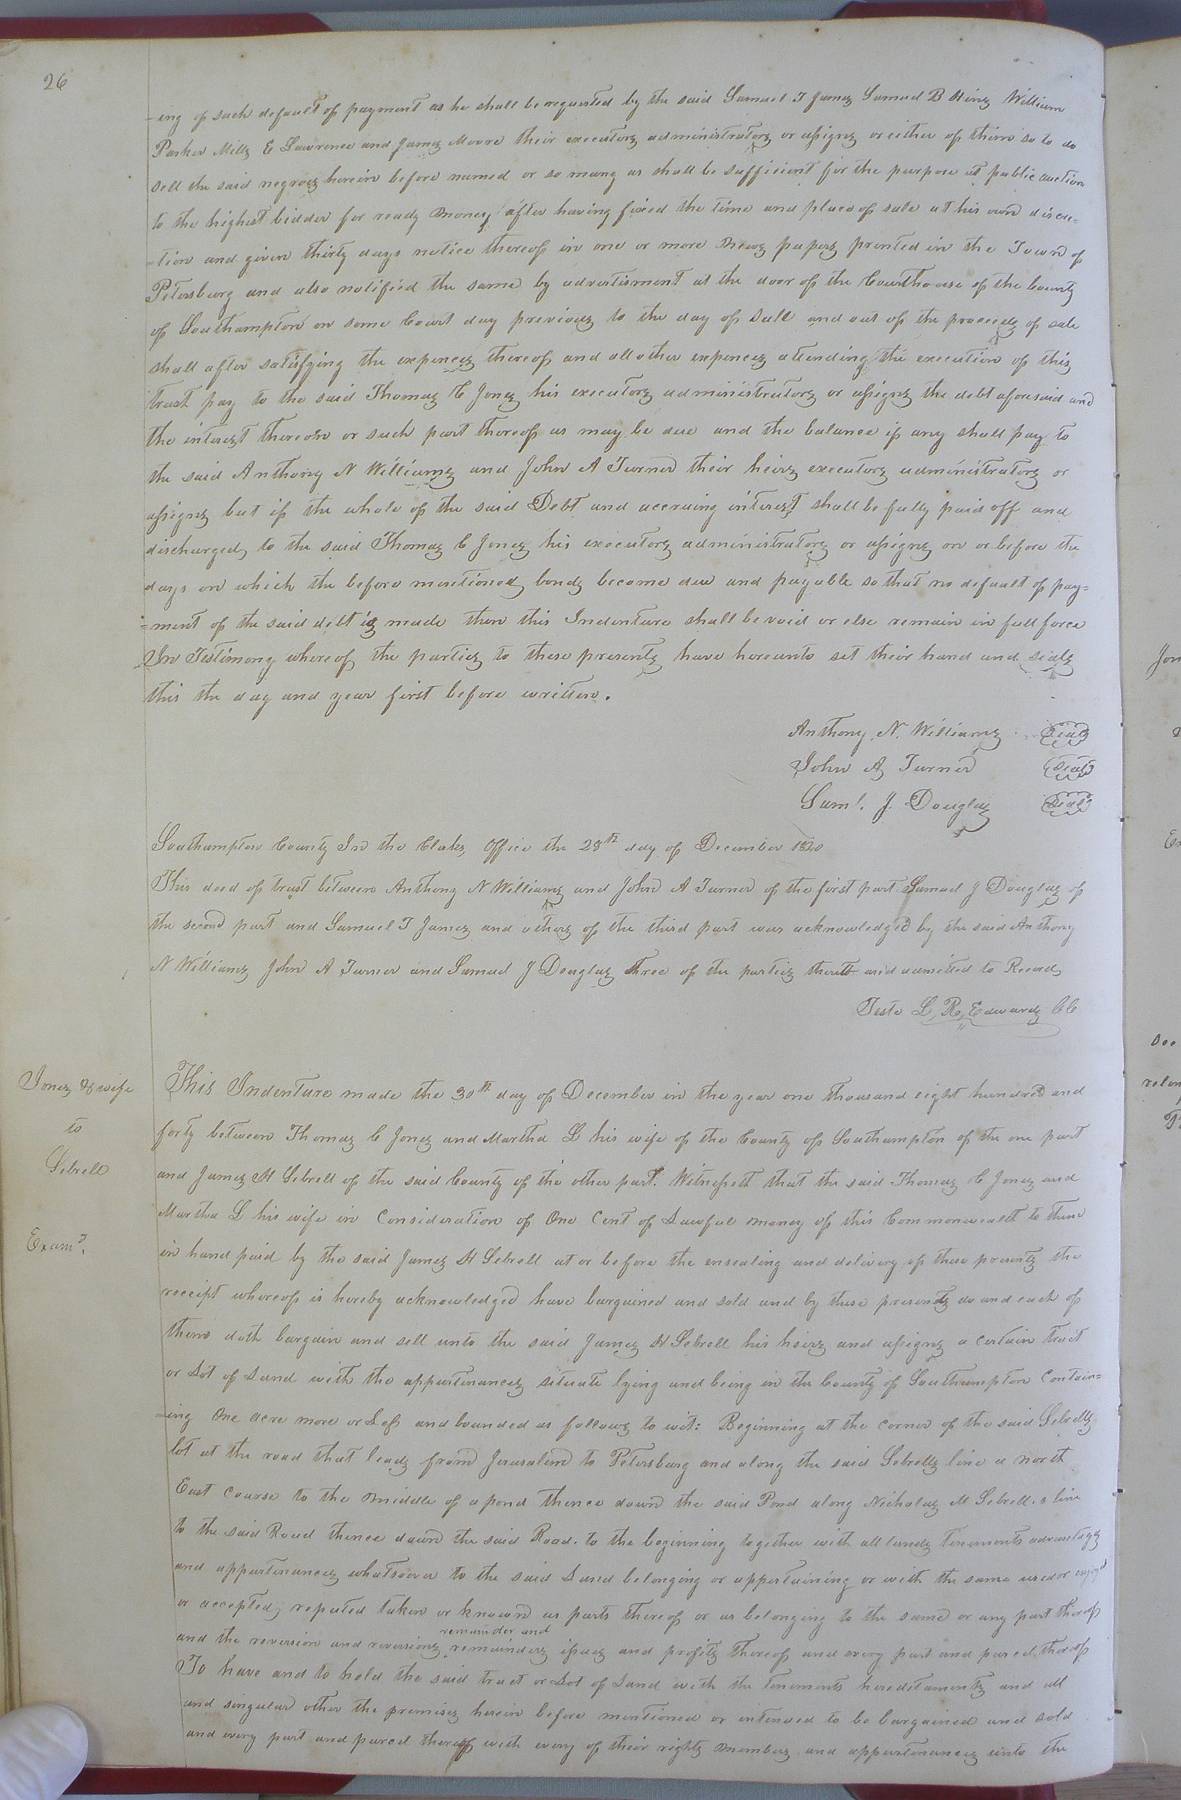 26
-ing of such default of payment as he shall be requested by the said Samuel T James Samuel B Hines William
Parker Mills E Lawrence and James Moore their executors administrators or assigns or either of them so to do
sell the said negroes herein before named or so many as shall be sufficient for the purpose at public auction
to the highest bidder for ready money after having fixed the time and place of sale at his own discre=
-tion and given thirty days notice thereof in one or more news papers printed in the Town of
Petersburg and also notified the same by advertisment at the door of the Courthouse of the County
of Southampton on some Court day previous to the day of sale and out of the proceeds of sale
shall after satisfying the expences thereof and all other expences attending the execution of this
trust pay to the said Thomas C Jones his executors administrators or assigns the debt aforesaid and
the interest thereon or such part thereof as may be due and the balance if any shall pay to
the said Anthony N Williams and John A Turner their heirs executors administrators or
assigns but if the whole of the said Debt and accruing interest shall be fully paid off and
discharged to the said Thomas C Jones his executors administrators or assigns on or before the
days on which the before mentioned bonds become due and payable so that no default of pay=
=ment of the said debt is made then this Indenture shall be void or else remain in full force
In Testimony whereof the parties to these presents have hereunto set their hand and seals
this the day and year first before written.
Anthony N. Williams Seal
John A Turner Seal
Saml. J. Douglas Seal
Southampton County In the Clerks Office the 28th day of December 1840
This deed of trust between Anthony N Williams and John A Turner of the first part Samuel J Douglas of
the second part and Samuel T James and others of the third part was acknowledged by the said Anthony
N Williams John A Turner and Samuel J Douglas three of the parties thereto and admitted to Record
Teste L, R, Edwards CC
Jones & wife
to
Sebrell
Examd.
This Indenture made the 30th day of December in the year one thousand eight hundred and
forty between Thomas C Jones and Martha L his wife of the County of Southampton of the one part
and James H Sebrell of the said County of the other part. Witnesseth that the said Thomas C Jones and
Martha L his wife in Consideration of One Cent of Lawful money of this Commonwealth to them
in hand paid by the said James H Sebrell at or before the ensealing and delivery of these presents the
receipt whereof is hereby acknowledged have bargained and sold and by these presents do and each of
them doth bargain and sell unto the said James H Sebrell his heirs and assigns a certain tract
or Lot of Land with the appurtenances situate lying and being in the County of Southampton Contain=
-ing One acre more or Less and bounded as follows to wit: Beginning at the corner of the said Sebrells
lot at the road that leads from Jerusalem to Petersburg and along the said Sebrells line a north
East course to the middle of a pond thence down the said Pond along Nicholas M Sebrell.s line
to the said Road thence down the said Road. to the beginning together with all lands tenements advantages
and appurtenances whatsoever to the said Land belonging or appertaining or with the same used or enjoyd
or accepted, reputed taken or known as parts thereof or as belonging to the same or any part thereof
remainder and
and the reversion and reversions remainders issues and profits thereof and every part and parcel thereof
To have and to hold the said tract or Lot of Land with the tenements hereditaments and all
and singular other the premises herein before mentioned or intended to be bargained and sold
and every part and parcel thereof with every of their rights members and appurtenances unto the